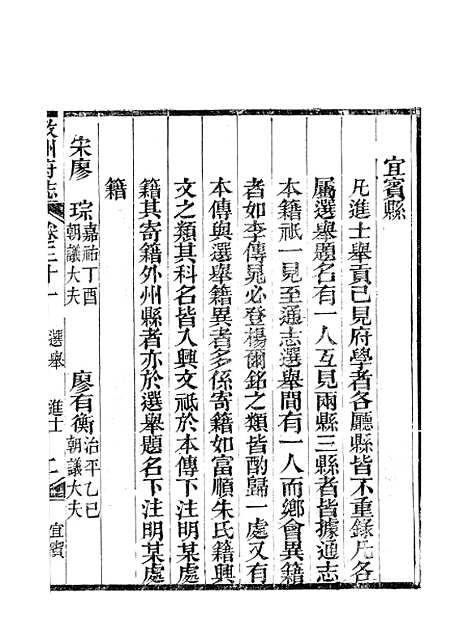 宜賓縣
凡進士舉貢已見府學者各廳縣皆不重錄凡各
屬選舉題名有一人互見兩縣三縣者皆據通志
本籍祇一見至通志選舉間有一人而鄉會異籍
者如李傳晃必登楊爾銘之類皆酌歸一處又有
本傳與選舉籍異者多係寄籍如富順朱氏籍興
文之類其科名皆入興文祇於本傳下注明某處
籍其寄籍外州縣者亦於選舉題名下注明某處
籍
宋廖 琮嘉祐丁酉朝議大夫 廖有衡治平乙巳朝議大夫
敘州府志 卷三十一 選舉 進士 二 宜賓